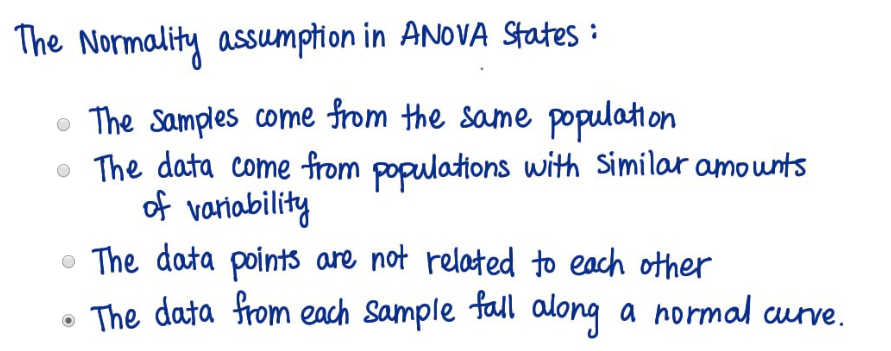 The Normality assumption in ANOVA States :
The Samples come from the same population
The data come from populations with Similar amounts
of variability
The data points are not related to each other
The data from each Sample fall along a normal curve.